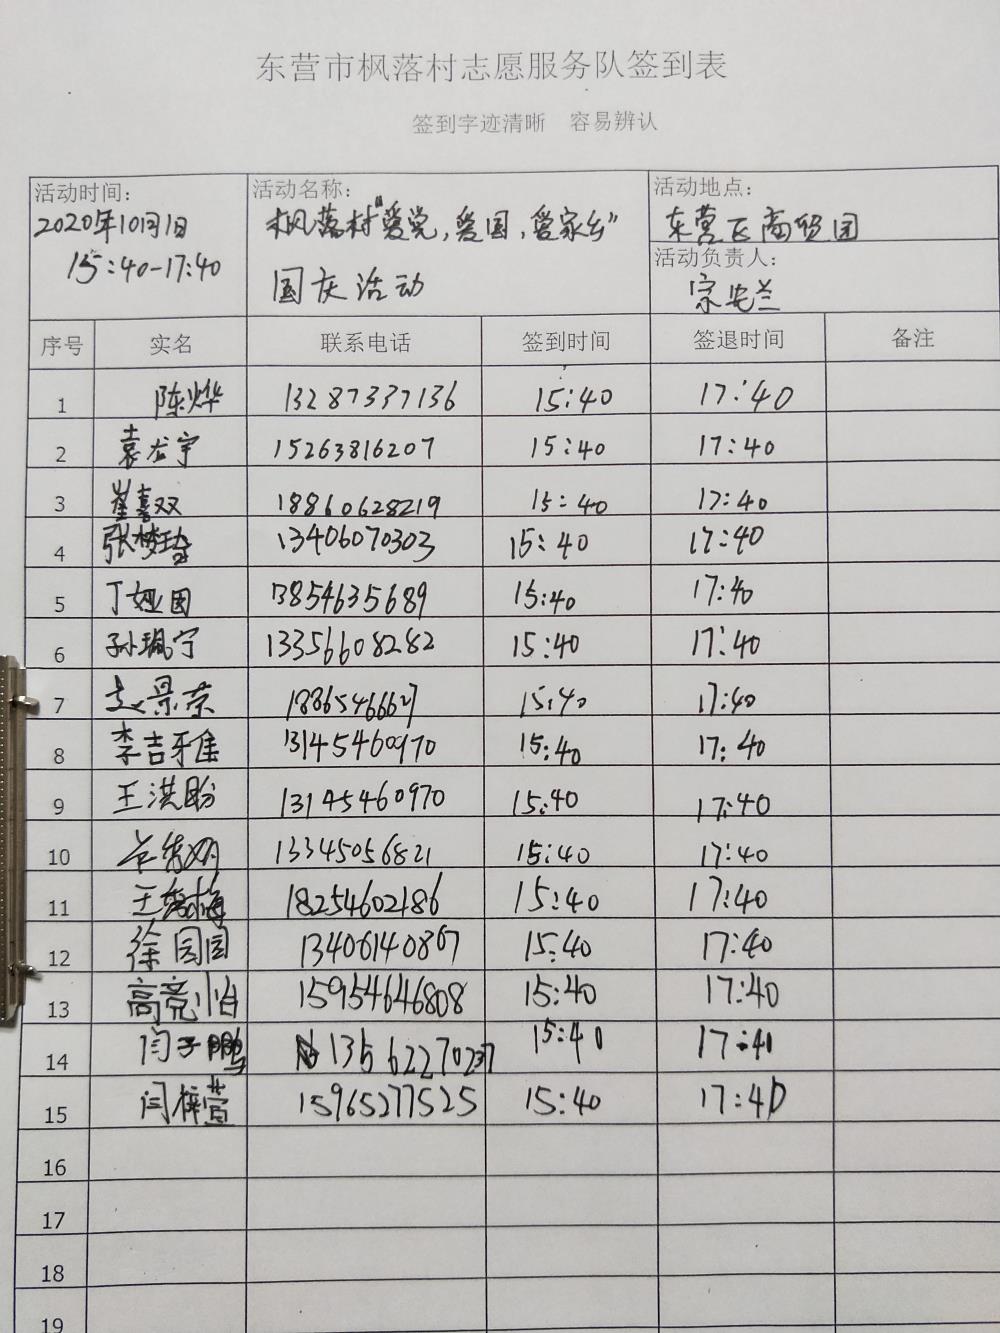 东营市枫落村志愿服务队签到表
签到字迹清晰 容易辨认
活动时间：
2020年10月1日
15:40-17:40
活动名称：
枫落村“爱党，爱国，爱家乡”
国庆活动
活动地点：
东营区商贸园
活动负责人：
宗安兰
序号 实名 联系电话 签到时间 签退时间 备注
1 陈烨 13287337136 15:40 17:40
2 袁龙宇 15263816207 15:40 17:40
3 崔喜双 18860628219 15:40 17:40
4 张梦 13406070303 15:40 17:40
5 丁娅囡 13854635689 15:40 17:40
6 孙珮宁 13356608282 15:40 17:40
7 景荣 18865466627 15:40 17:40
8 李吉雅 13145460970 15:40 17:40
9 王洪盼 13145460970 15:40 17:40
10 13345056821 15:40 17:40
11 王秀梅 18254602186 15:40 17:40
12 徐园园 13406140867 15:40 17:40
13 高竞怡 15954646808 15:40 17:40
14 闫子鹏 13562270237 15:40 17:41
15 闫梓萱 15965277525 15:40 17:40
16
17
18
19